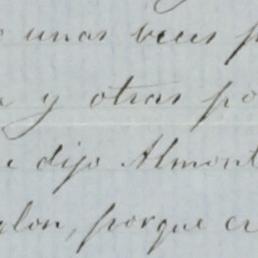 unas veces p
y otras po
e dijo Almont
lon, porque er